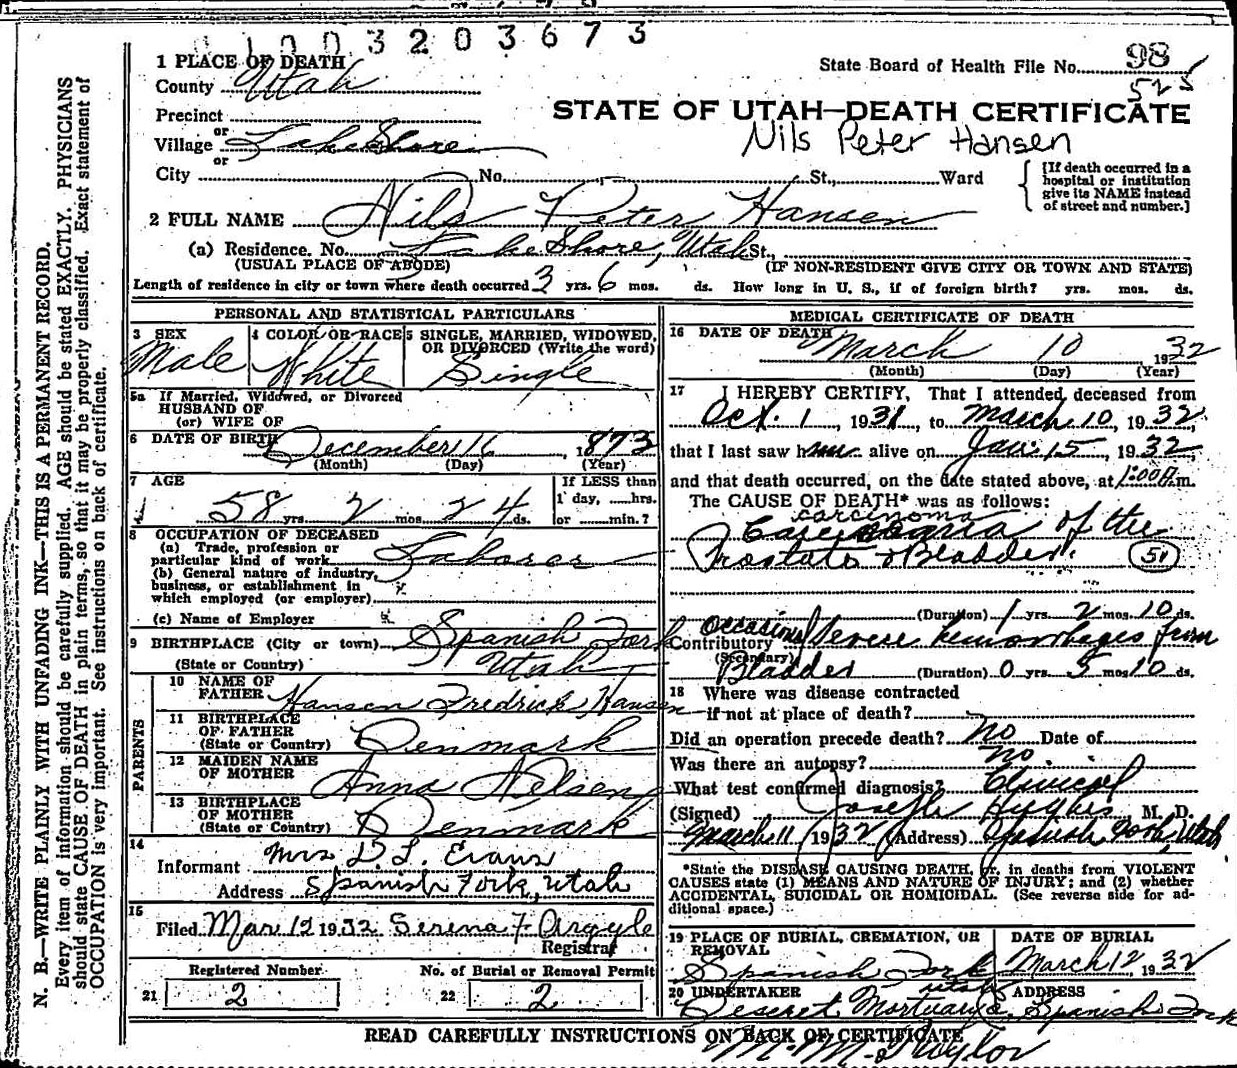 1003203673
1 PLACE OF DEATH
State Board of Health File No. 98
County Utah
525
Precinct
STATE OF UTAH—DEATH CERTIFICATE
or
Village Lake Shore
Nils Peter Hansen
or
City No. St., Ward
[If death occurred in a
hospital or institution
give its NAME instead
of street and number.]
2 FULL NAME Nils Peter Hansen
(a) Residence. No. Lake Shore, Utah St.,
(USUAL PLACE OF ABODE) (IF NON-RESIDENT GIVE CITY OR TOWN AND STATE)
Length of residence in city or town where death occurred 3 yrs. 6 mos. ds. How long in U. S., if of foreign birth? yrs. mos. ds.
PERSONAL AND STATISTICAL PARTICULARS
3 SEX
Male
4 COLOR OR RACE
White
5 SINGLE, MARRIED, WIDOWED,
OR DIVORCED (Write the word)
Single
5a If Married, Widowed, or Divorced
HUSBAND OF
(or) WIFE OF
6 DATE OF BIRTH December 16, 1873
(Month) (Day) (Year)
7 AGE
58 yrs. 2 mos. 24 ds.
If LESS than
1 day, ......hrs.
or ........min.?
8 OCCUPATION OF DECEASED
(a) Trade, profession or
particular kind of work Laborer
(b) General nature of industry,
business, or establishment in
which employed (or employer)
(c) Name of Employer
9 BIRTHPLACE (City or town) Spanish Fork
(State or Country) Utah
PARENTS
10 NAME OF
FATHER Hansen Fredrick Hansen
11 BIRTHPLACE
OF FATHER
(State or Country) Denmark
12 MAIDEN NAME
OF MOTHER Anna Nelsen
13 BIRTHPLACE
OF MOTHER
(State or Country) Denmark
14
Informant Mrs D. L. Evans
Address Spanish Fork, Utah
15
Filed Mar 12 1932 Serena F Argyle
Registrar
Registered Number
21 2
No. of Burial or Removal Permit
22 2
MEDICAL CERTIFICATE OF DEATH
16 DATE OF DEATH
March 10 1932
(Month) (Day) (Year)
17 I HEREBY CERTIFY, That I attended deceased from
Oct. 1, 1931, to March 10, 1932,
that I last saw him alive on Jan. 15, 1932,
and that death occurred, on the date stated above, at 1:00 P.m.
The CAUSE OF DEATH* was as follows:
carcinoma
of the
Prostate & Bladder.
51
(Duration) 1 yrs. 2 mos. 10 ds.
Contributory Severe hemorrhages from
(Secondary)
Bladder (Duration) 0 yrs. 5 mos. 10 ds.
18 Where was disease contracted
if not at place of death?
Did an operation precede death? No Date of
Was there an autopsy? No.
What test confirmed diagnosis? Clinical
(Signed) Joseph Hughes M. D.
March 11 1932 (Address) Spanish Fork, Utah
*State the DISEASE CAUSING DEATH, or, in deaths from VIOLENT
CAUSES state (1) MEANS AND NATURE OF INJURY; and (2) whether
ACCIDENTAL, SUICIDAL OR HOMICIDAL. (See reverse side for ad-
ditional space.)
19 PLACE OF BURIAL, CREMATION, OR
REMOVAL
Spanish Fork
Utah
DATE OF BURIAL
March 12, 1932
20 UNDERTAKER
Deseret Mortuary
ADDRESS
Spanish Fork
READ CAREFULLY INSTRUCTIONS ON BACK OF CERTIFICATE
N. B.—WRITE PLAINLY WITH UNFADING INK—THIS IS A PERMANENT RECORD.
Every item of information should be carefully supplied. AGE should be stated EXACTLY. PHYSICIANS
should state CAUSE OF DEATH in plain terms, so that it may be properly classified. Exact statement of
OCCUPATION is very important. See instructions on back of certificate.